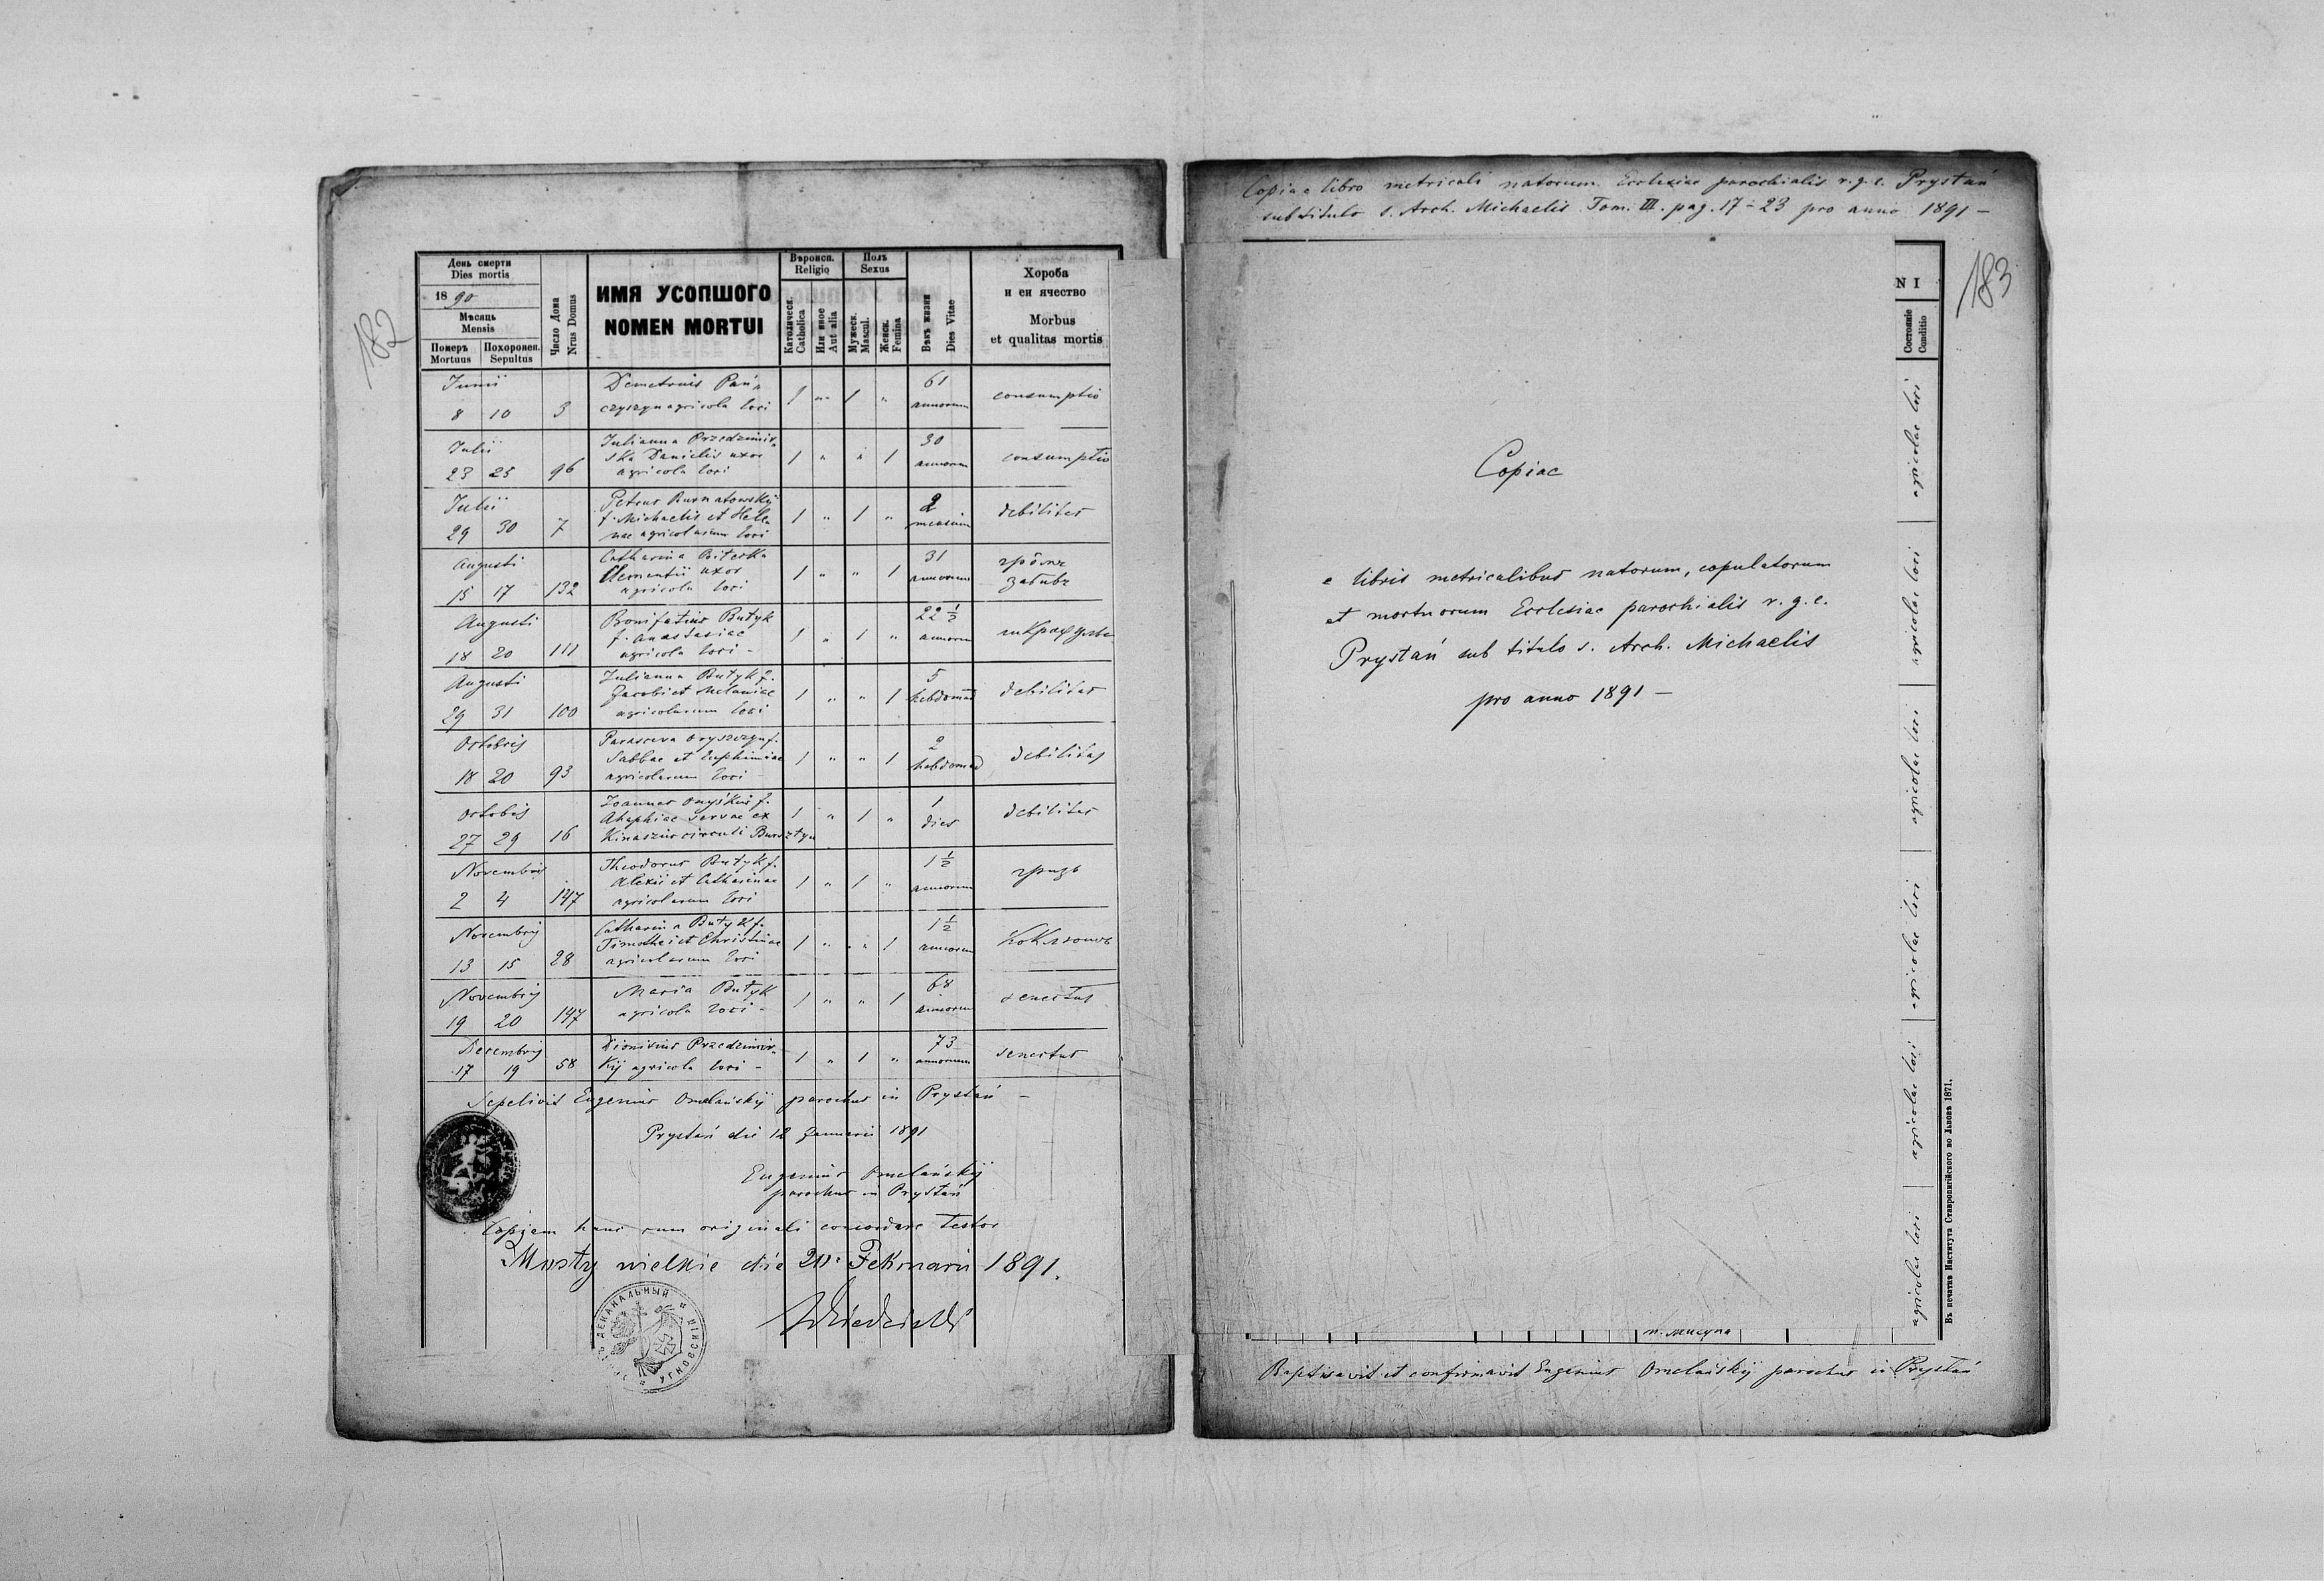 182
День смерти
Dies mortis
1890
Мѣсяць
Mensis
Померъ
Mortuus
Похоронен.
Sepultus
Число Дома
Nrus Domus
ИМЯ УСОПШОГО
NOMEN MORTUI
Вѣроисп.
Religio
Католическ.
Catholica
Или иное
Aut alia
Полъ
Sexus
Мужеск.
Mascul.
Женск.
Femina
Вѣкъ жизни
Dies Vitae
Хороба
и еи ячество
Morbus
et qualitas mortis
Junii
8 10 3
Demetrius Pań„
czyszyn agricola loci
1 „ 1 „
61
annorum
consumptio
Julii
23 25 96
Julianna Przedzimir„
ska Danielis uxor
agricola loci
1 „ „ 1
30
annorum
consumptio
Julii
29 30 7
Petrus Burnatowskij
f. Michaelis et Hele„
nae agricolarum loci
1 „ 1 „
2
mensium
debilitas
Augusti
15 17 132
Catharina
Clementii uxor
agricola loci
1 „ „ 1
31
annorum
Augusti
18 20 111
Bonifatius Butyk
f. Anastasiae
agricola loci -
1 „ 1 „
22 ½
annorum
Augusti
29 31 100
Julianna Butyk f.
Jacobi et Melaniae
agricolarum loci
1 „ „ 1
5
hebdomad
debilitas
Octobris
18 20 93
Parasceva f.
Sabbae et Euphimiae
agricolarum loci -
1 „ „ 1
2
hebdomad
debilitas
Octobris
27 29 16
Joannes Onyśkiw f.
Ahaphiae servae ex
circuli Bursztyn
1 „ 1 „
1
dies
debilitas
Novembris
2 4 147
Theodorus Butyk f.
Alexii et Catharinae
agricolarum loci
1 „ 1 „
1 ½
annorum
Novembris
13 15 28
Catharina Butyk f.
Timothei et Christinae
agricolarum loci
1 „ „ 1
1 ½
annorum
Novembris
19 20 147
Maria Butyk
agricola loci -
1 „ „ 1
68
annorum
senectus
Decembris
17 19 58
Dionisius Przedzimir„
skij agricola loci -
1 „ 1 „
73
annorum
senectus
Sepelivit Eugenius Omelańskij parochus in Prystań -
Prystań die 12 Januarii 1891
Eugenius Omelańskij
parochus in Prystań
Copiam hanc cum originali concordare testor
Mosty wielkie die Februarii 1891.
ДЕКАНАЛЬНЫЙ
УГНОВСКІЙ
Copia e libro metricali natorum Ecclesiae parochialis r. g. c. Prystań
sub titulo s. Arch. Michaelis Tom. III. pag. 17-23 pro anno 1891 -
183
NI
Состояніе
Conditio
Copiae
e libris metricalibus natorum, copulatorum
et mortuorum Ecclesiae parochialis r. g. c.
Prystań sub titulo s. Arch. Michaelis
pro anno 1891 -
agricolae loci
agricolae loci
agricolae loci
agricolae loci
agricolae loci
agricolae loci
Въ печатнѣ Института Ставропигійского во Львовѣ 1871.
Baptisavit et confirmavit Eugenius Omelańskij parochus in Prystań